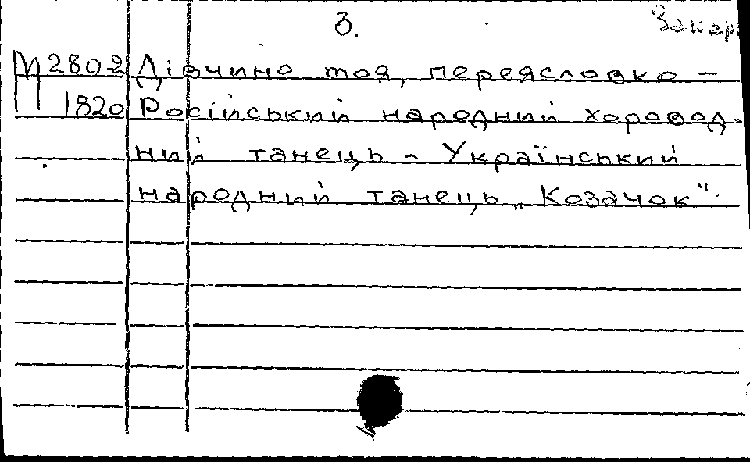 3.
Закар
М 2802 Дівчино моя, переяславко –
1820 Російський народний хоровод-
ний танець – Український
народний танець „Козачок".